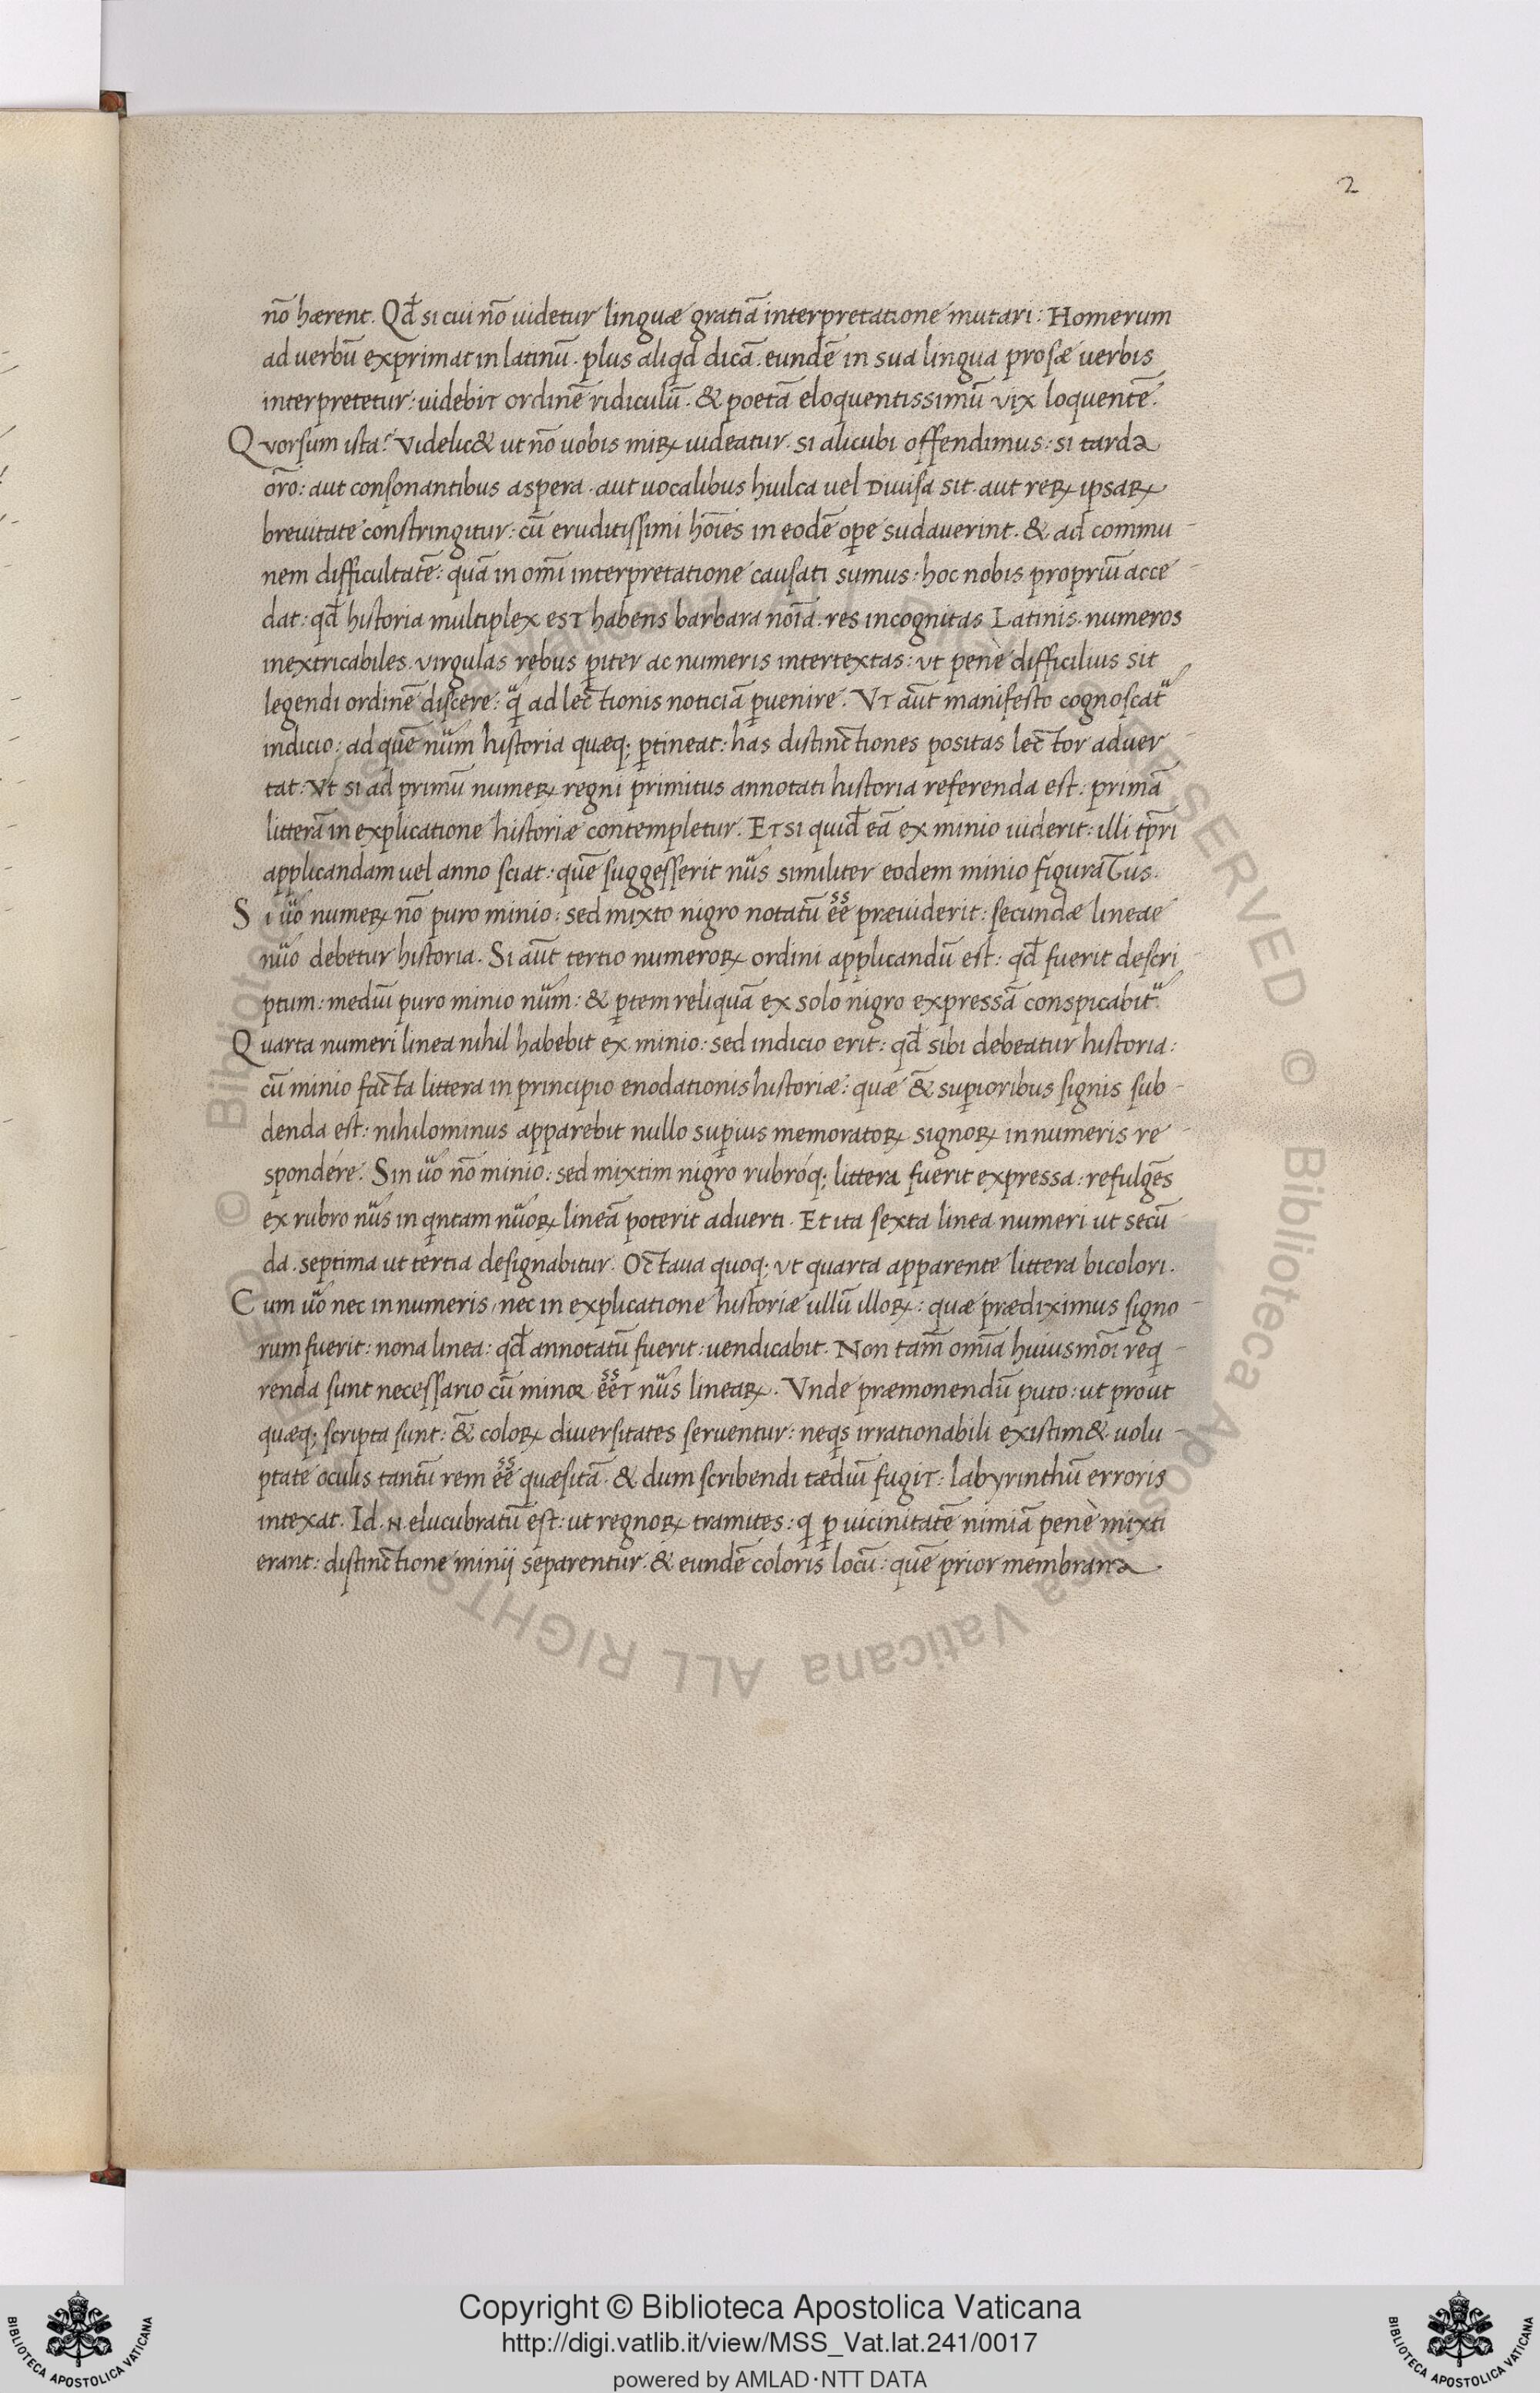 2
nō hærent. Qđ si cui nō uidetur linguæ gratiā interpretatione mutari: Homerum
ad uerbū exprimat in latinū. plus aliqd dicā. eundē in sua lingua prosæ uerbis
interpretetur: uidebit ordinē ridiculū. & poetā eloquentissimū vix loquentē.
Quorsum ista? Videlic& ut nō uobis miꝝ uideatur. si alicubi offendimus: si tarda
or̄o: aut consonantibus aspera. aut uocalibus hiulca uel diuisa sit. aut reꝝ ipsaꝝ
breuitate constringitur: cū eruditissimi hōies in eodē oꝑe sudauerint. & ad commu-
nem difficultatē: quā in om̄i interpretatione causati sumus: hoc nobis propriū acce-
dat: qđ historia multiplex est habens barbara noīa. res incognitas Latinis. numeros
inextricabiles. virgulas rebus ꝑiter ac numeris intertextas: ut penè difficilius sit
legendi ordinē discere: qͣ ad lectionis noticiā ꝑuenire. Vt aūt manifesto cognoscat᷑
indicio: ad quē nūm historia quæq; ꝑtineat: has distinctiones positas lector aduer-
tat: Vt si ad primū numeꝝ regni primitus annotati historia referenda est: primā
litterā in explicatione historiæ contempletur. Et si quidē eā ex minio uiderit: illi tꝑri
applicandam uel anno sciat: quē suggesserit nūs similiter eodem minio figuratus.
Si uͦo numeꝝ nō puro minio: sed mixto nigro notatū ēē præuiderit: secundæ lineae
nūo debetur historia. Si aūt tertio numeroꝝ ordini applicandū est: qđ fuerit descri-
ptum: mediū puro minio nūm: & ꝑtem reliquā ex solo nigro expressā conspicabit᷑.
Quarta numeri linea nihil habebit ex minio: sed indicio erit: qđ sibi debeatur historia:
cū minio facta littera in principio enodationis historiæ: quæ & suꝑioribus signis sub-
denda est: nihilominus apparebit nullo suꝑius memoratoꝝ signoꝝ in numeris re-
spondére. Sin uͦo nō minio: sed mixtim nigro rubróq; littera fuerit expressa: refulgēs
ex rubro nūs in qntam nūoꝝ lineā poterit aduerti. Et ita sexta linea numeri ut secū-
da. septima ut tertia designabitur. Octaua quoq; ut quarta apparente littera bicolori.
Cum uͦo nec in numeris, nec in explicatione historiæ ullū illoꝝ: quæ prædiximus signo-
rum fuerit: nona linea: qđ annotatū fuerit: uendicabit. Non tam̄ om̄ia huiusmōi req-
renda sunt necessario cū minor ēēt nūs lineaꝝ. Vnde præmonendū puto: ut prout
quæq; scripta sunt: & coloꝝ diuersitates seruentur: neqs irrationabili existim& uolu-
ptate oculis tantū rem ēē quæsitā. & dum scribendi tædiū fugit: labyrinthū erroris
intexat. Id .N. elucubratū est: ut regnoꝝ tramites: q ꝑ uicinitatē nimiā penè mixti
erant: distinctione minij separentur. & eundē coloris locū: quē prior membrana
© Biblioteca Apostolica Vaticana ALL RIGHTS RESERVED
Copyright © Biblioteca Apostolica Vaticana
http://digi.vatlib.it/view/MSS_Vat.lat.241/0017
powered by AMLAD·NTT DATA
BIBLIOTECA APOSTOLICA VATICANA
BIBLIOTECA APOSTOLICA VATICANA